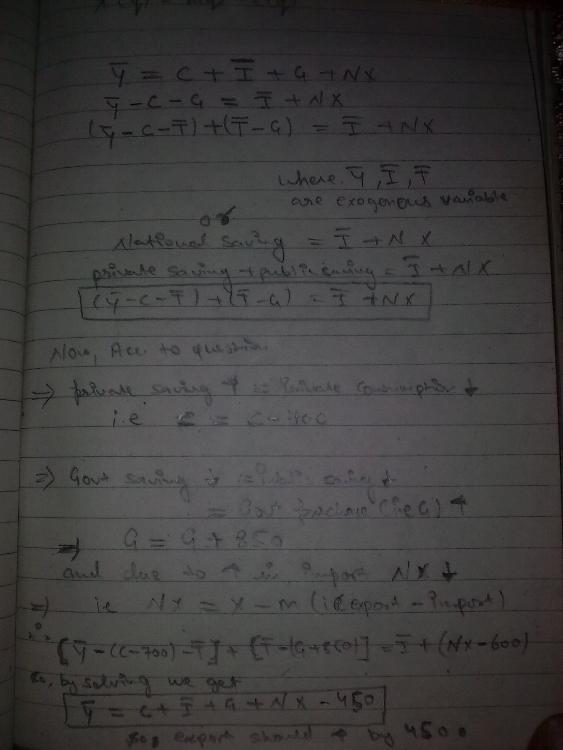 Ȳ = C + Ī + G + NX
Ȳ - C - G = Ī + NX
(Ȳ - C - T̄) + (T̄ - G) = Ī + NX
where Ȳ, Ī, T̄
are exogenous variable
or
National Saving = Ī + NX
private saving + public saving = Ī + NX
(Ȳ - C - T̄) + (T̄ - G) = Ī + NX
Now, Acc. to question
⇒ private saving ↑ = Private Consumption ↓
i.e C = C -
⇒ Govt saving ↓ = Public saving ↓
= Govt (i.e G) ↑
⇒ G = G + 850
and due to ↑ in import NX ↓
⇒ ie NX = X - M (i.e export - import)
∴ [Ȳ - (C - 700) - T̄] + [T̄ - (G + 850)] = Ī + (NX - 600)
So, by solving we get
Ȳ = C + Ī + G + NX - 450
So, export should ↑ by 450